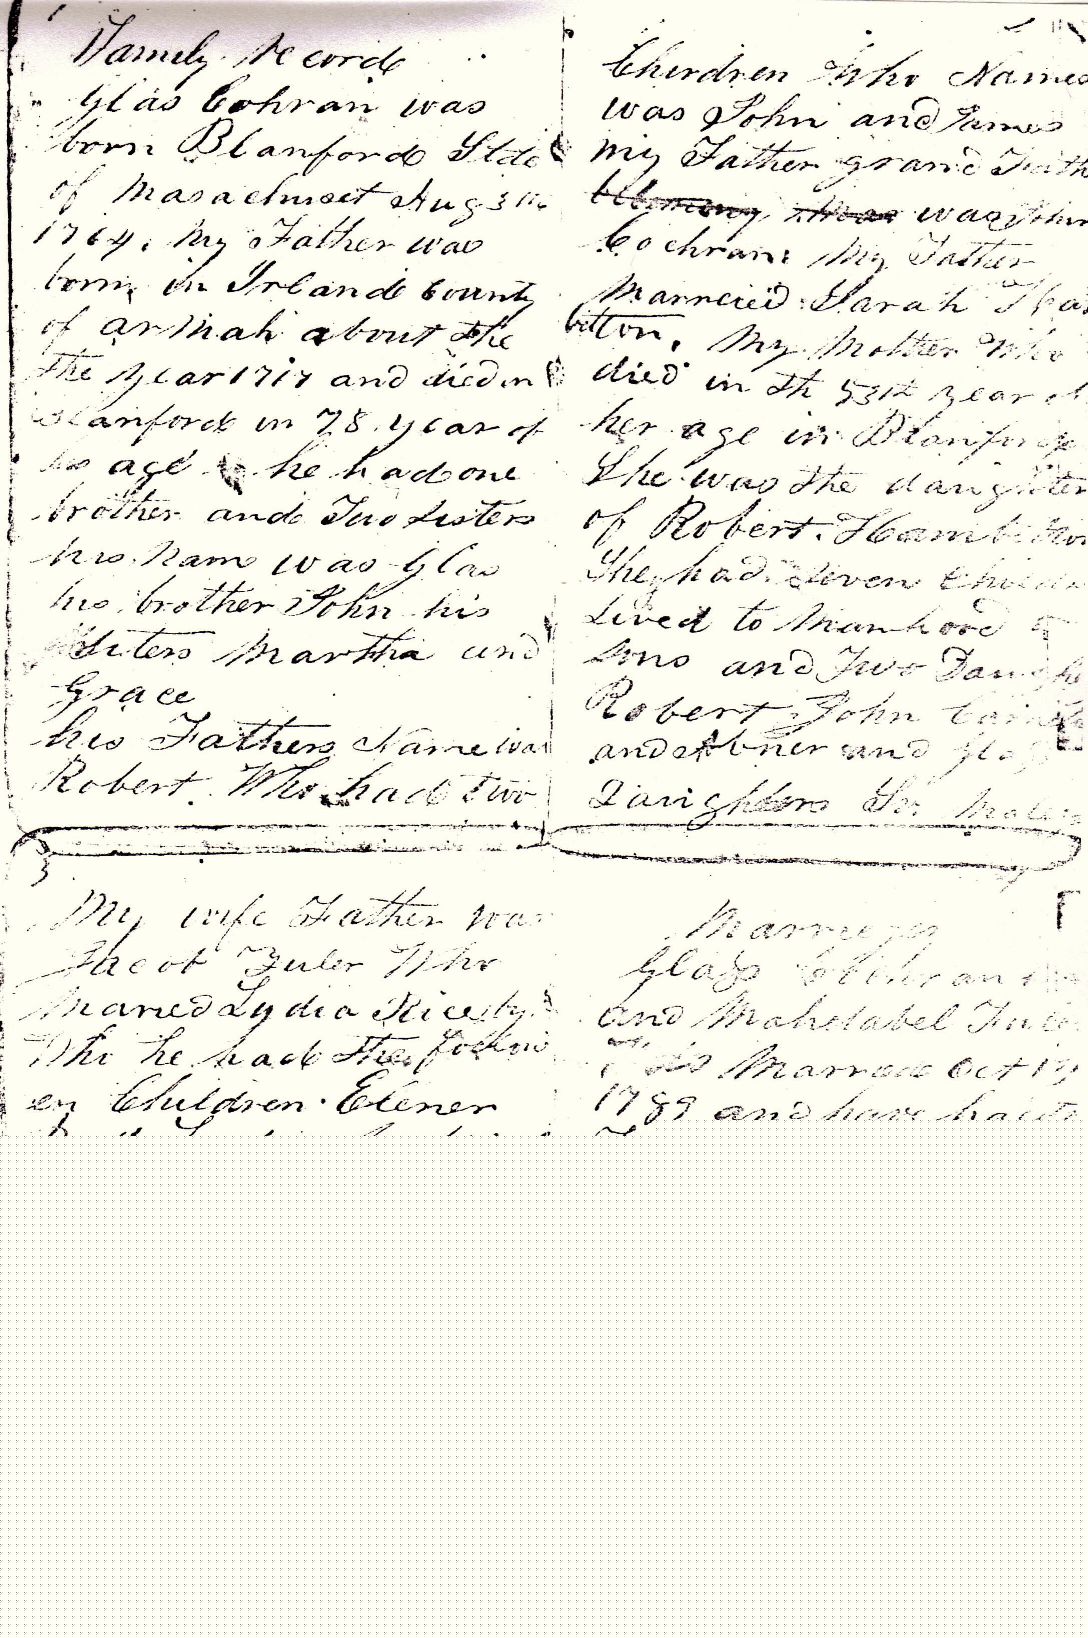 Family Record
Glas Cohran was
born Blanford State
of Masachuset Aug 3
1764. My Father was
born in Irland County
of arMah about the
the year 1717 and died in
Blanford in 78 year of
his age he had one
brother and Two sisters
his Nam was Glas
his brother John his
sisters Martha and
Grace
his Fathers Name was
Robert. Who had two
Chirdren who Names
was John and James
my Father grand Fath
was John
Cochran. My Father
Marrcied Sarah Ham
bilton. My Mother Who
died in th 53th year of
her age in Blanford
She was the daughter
of Robert. Hambilton
She had eleven Child
Lived to Manhood
sons and Two Daughe
Robert John
and Abner and Glas
Daughters
My wife Father was
Jacob Fuler Who
Maried Lydia Rice by
Who he had the follow
en Children. Elener
Marrieges
Glass Cochran
and Mahetabel Fuler
Marrid Oct 1
1789 and have had